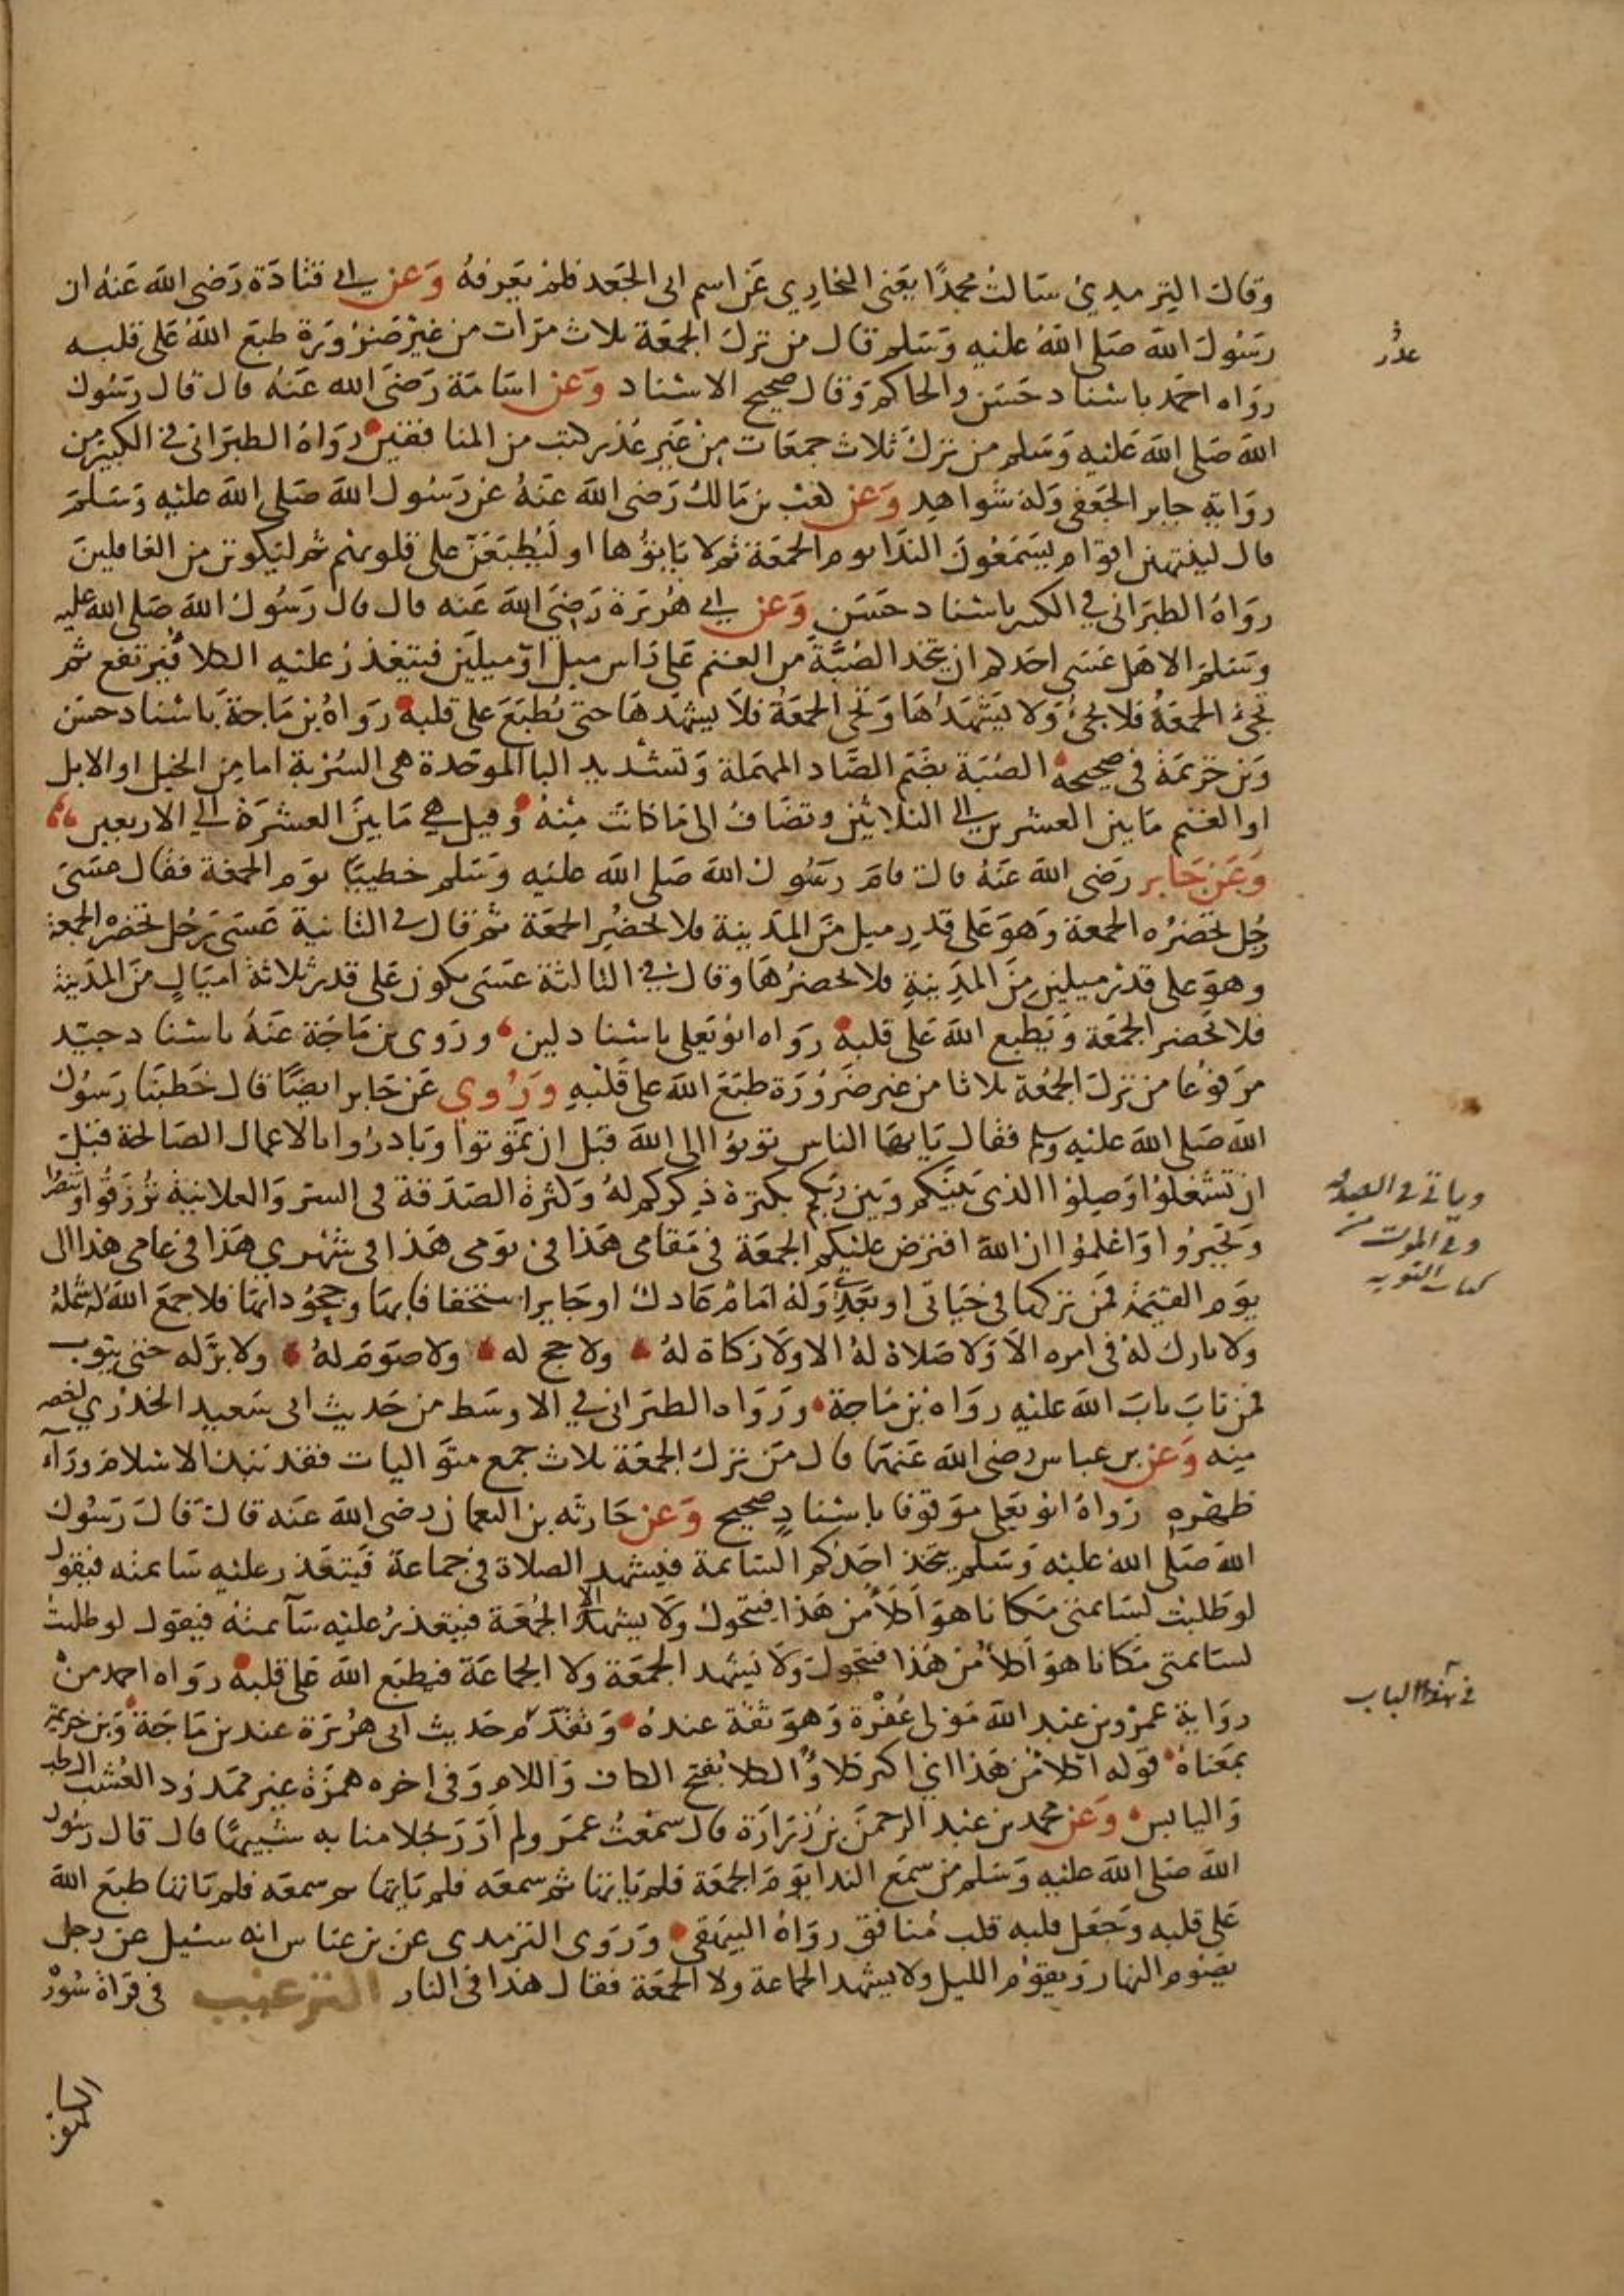 وقال الترمذي سالت محمدًا يعني البخاري عن اسم ابي الجعد فلم يعرفه وعن ابي قتادة رضي الله عنه ان
رسول الله صلى الله عليه وسلم قال من ترك الجمعة ثلاث مرات من غير ضرورة طبع الله على قلبه
رواه احمد باسناد حسن والحاكم وقال صحيح الاسناد وعن اسامة رضي الله عنه قال قال رسول
الله صلى الله عليه وسلم من ترك ثلاث جمعات من غير عذر كتب من المنافقين رواه الطبراني في الكبير من
رواية جابر الجعفي وله شواهد وعن كعب بن مالك رضي الله عنه عن رسول الله صلى الله عليه وسلم
قال لينتهين اقوام يسمعون الندا يوم الجمعة ثم لا ياتوها او ليطبعن على قلوبهم ثم ليكونن من الغافلين
رواه الطبراني في الكبير باسناد حسن وعن ابي هريرة رضي الله عنه قال قال رسول الله صلى الله عليه
وسلم الا هل عسى احدكم ان يتخذ الصبة من الغنم على راس ميل او ميلين فيتعذر عليه الكلا فيرتفع ثم
تجيء الجمعة فلا يجيء ولا يشهدها وتجي الجمعة فلا يشهدها حتى يطبع على قلبه رواه بن ماجة باسناد حسن
وبن خزيمة في صحيحه الصبة بضم الصاد المهملة وتشديد البا الموحدة هي السربة اما من الخيل او الابل
او الغنم ما بين العشرين الى الثلاثين وتضاف الى ما كانت منه وقيل هي ما بين العشرة الى الاربعين
وعن جابر رضي الله عنه قال قام رسول الله صلى الله عليه وسلم خطيبًا يوم الجمعة فقال عسى
رجل تحضره الجمعة وهو على قدر ميل من المدينة فلا يحضر الجمعة ثم قال في الثانية عسى رجل تحضره الجمعة
وهو على قدر ميلين من المدينة فلا يحضرها وقال في الثالثة عسى يكون على قدر ثلاثة اميال من المدينة
فلا يحضر الجمعة ويطبع الله على قلبه رواه ابو يعلى باسناد لين وروى بن ماجة عنه باسناد جيد
مرفوعا من ترك الجمعة ثلاثا من غير ضرورة طبع الله على قلبه وروي عن جابر ايضًا قال خطبنا رسول
الله صلى الله عليه وسلم فقال يا يها الناس توبوا الى الله قبل ان تموتوا وبادروا بالاعمال الصالحة قبل
ان تشغلوا وصلوا الذي بينكم وبين ربكم بكثرة ذكركم له وكثرة الصدقة في السر والعلانية ترزقوا وتنصروا
وتجبروا واعلموا ان الله افترض عليكم الجمعة في مقامي هذا في يومي هذا في شهري هذا في عامي هذا الى
يوم القيمة فمن تركها في حياتي او بعدي وله امام عادل او جاير استخفافا بها وجحودا بها فلا جمع الله له شمله
ولا بارك له في امره الا ولا صلاة له الا ولا زكاة له ولا حج له ولا صوم له ولا بر له حتى يتوب
فمن تاب تاب الله عليه رواه بن ماجة ورواه الطبراني في الاوسط من حديث ابي سعيد الخدري اخصر
منه وعن بن عباس رضي الله عنهما قال من ترك الجمعة ثلاث جمع متواليات فقد نبذ الاسلام ورآء
ظهره رواه ابو يعلى موقوفا باسناد صحيح وعن حارثه بن النعمان رضي الله عنه قال قال رسول
الله صلى الله عليه وسلم يتخذ احدكم السائمة فيشهد الصلاة في جماعة فيتعذر عليه سائمته فيقول
لو طلبت لسائمتي مكانا هو اكلأ من هذا فيتحول ولا يشهد الا الجمعة فيتعذر عليه سآئمته فيقول لو طلبت
لسائمتي مكانا هو اكلأ من هذا فيتحول ولا يشهد الجمعة ولا الجماعة فيطبع الله على قلبه رواه احمد من
رواية عمرو بن عبد الله مولى غفرة وهو ثقة عنده وتقدم حديث ابي هريرة عند بن ماجة وبن خزيمة
بمعناه قوله اكلأ من هذا اي اكثر كلاً والكلا بفتح الكاف واللام وفي اخره همزة غير ممدود العشب الرطب
واليابس وعن محمد بن عبد الرحمن بن زرارة قال سمعت عمر ولم ار رجلا منا به شبيها قال قال رسول
الله صلى الله عليه وسلم من سمع الندا يوم الجمعة فلم ياتها ثم سمعه فلم ياتها ثم سمعه فلم ياتها طبع الله
على قلبه وجعل قلبه قلب منافق رواه البيهقي وروى الترمذي عن بن عباس انه سئيل عن رجل
يصوم النهار ويقوم الليل ولا يشهد الجماعة ولا الجمعة فقال هذا في النار الترغيب في قراة سورة
عذر
وياتي في الصدقة
وفي الموت من
كتاب التوبه
في هذا الباب